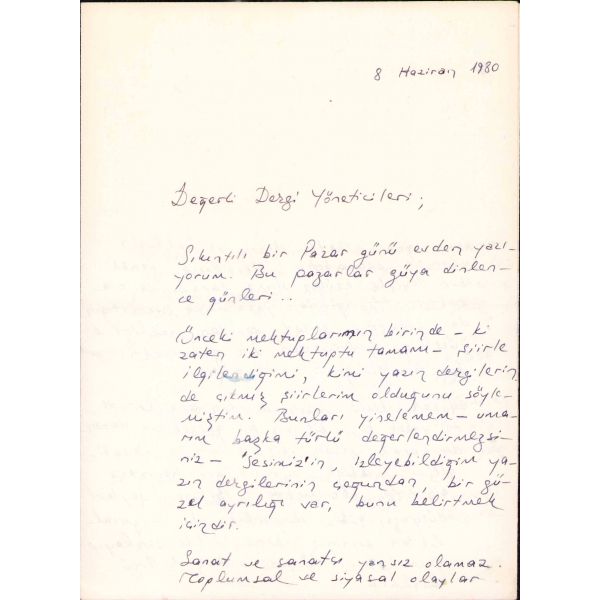 8 Haziran 1980
Değerli Dergi Yöneticileri;
Sıkıntılı bir Pazar günü evden yazı-
yorum. Bu pazarlar güya dinlen-
ce günleri..
Önceki mektuplarımın birinde - ki
zaten iki mektuptu tamamı - şiirle
ilgilendiğimi, kimi yazın dergilerin
de çıkmış şiirlerim olduğunu söyle-
miştim. Bunları yinelemem - uma-
rım başka türlü değerlendirmezsi-
niz - 'Sesimiz'in, izleyebildiğim ya-
zın dergilerinin çoğundan, bir gü-
zel ayrılığı var, bunu belirtmek
içindir.
Sanat ve sanatçı yansız olamaz.
Toplumsal ve siyasal olaylar